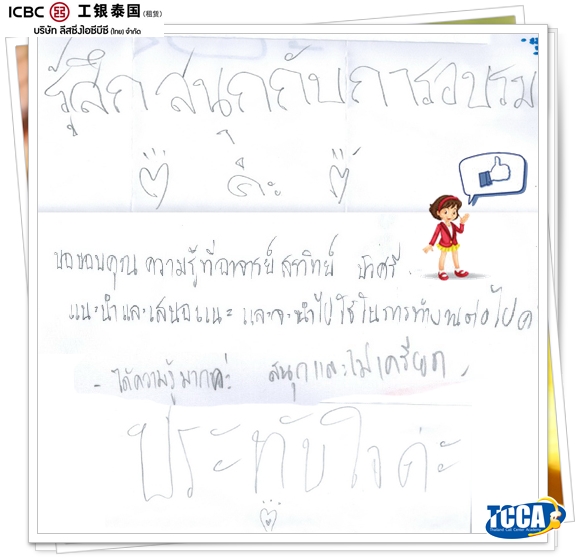 ICBC 工银泰国 (租赁)
บริษัท ลีสซิ่งไอซีบีซี (ไทย) จำกัด
รู้สึกสนุกกับการอบรม
ค่ะ
ขอขอบคุณ ความรู้ที่อาจารย์ สาทิทย์
แนะนำและเสนอแนะ และจะนำไปใช้ในการทำงานต่อไปค่
- ได้ความรู้มากค่ะ สนุกและไม่เครียด -
ประทับใจค่ะ
TCCA
Thailand Call Center Academy